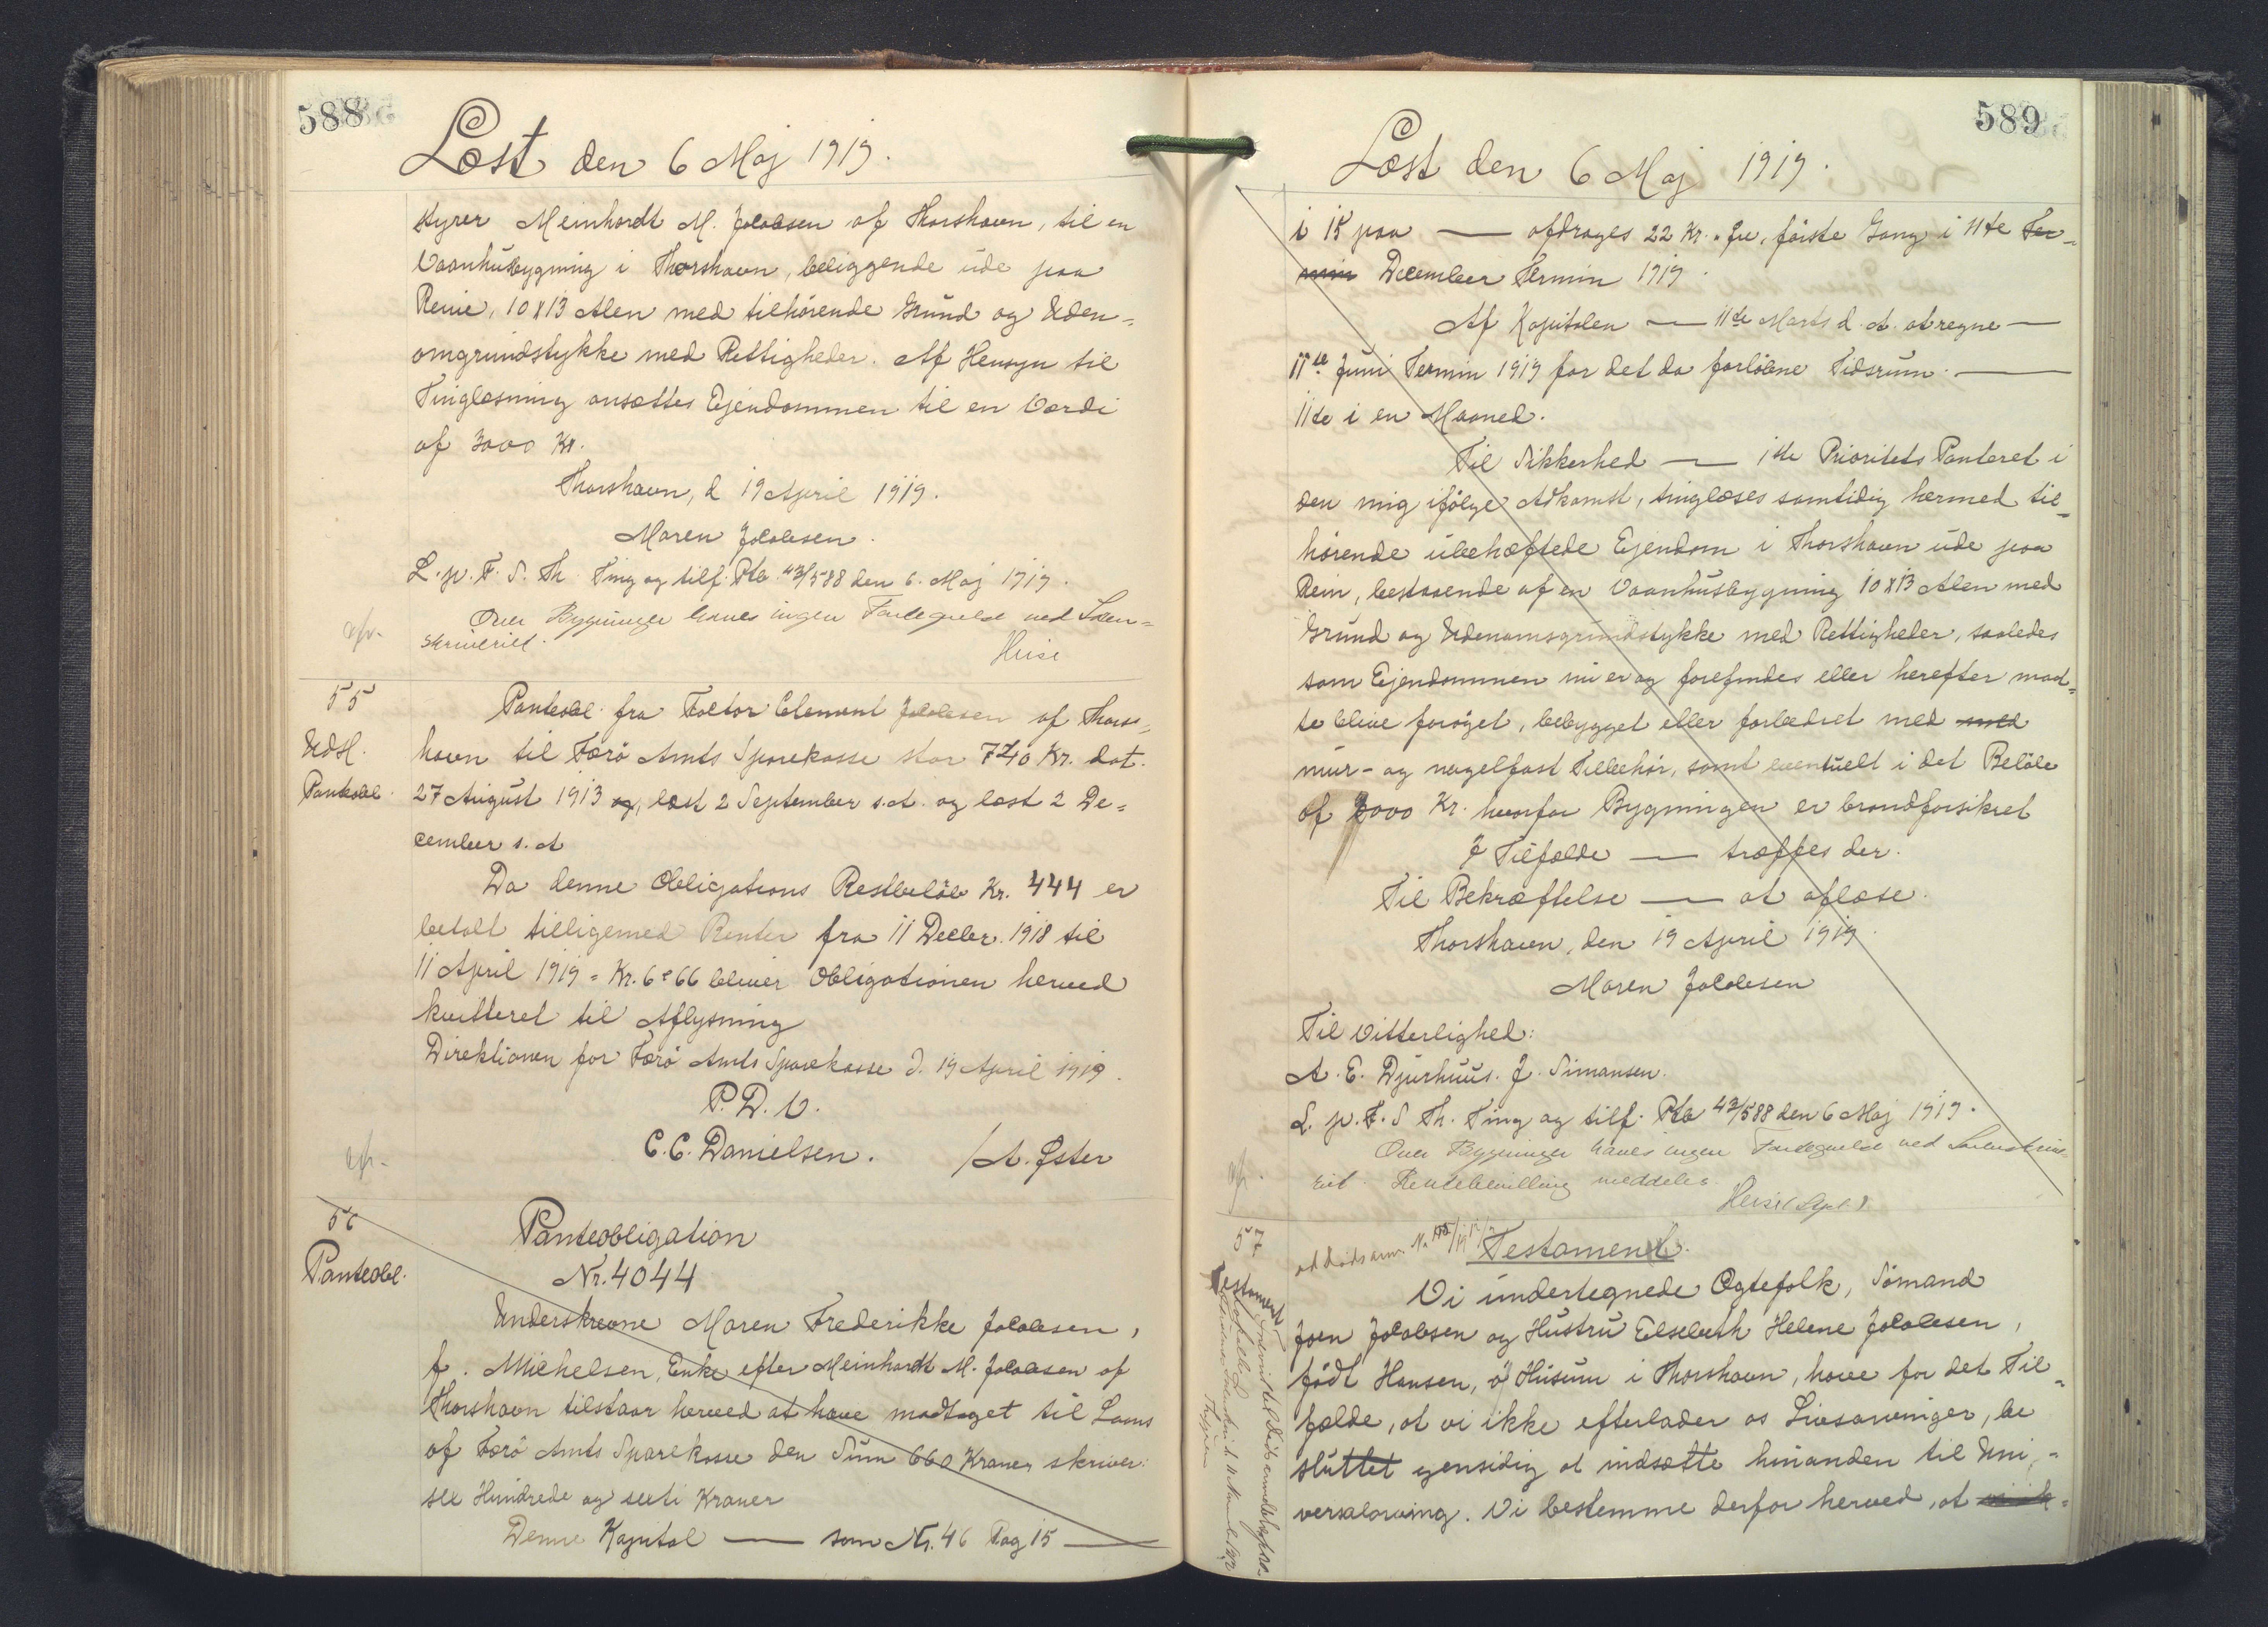 588
Læst den 6 Maj 1919.
styrer Meinhardt M. Jakobsen af Thorshavn, til en
Vaanhusbygning i Thorshavn, beliggende ude paa
Reine, 10 x 13 Alen med tilhørende Grund og Uden-
omgrundstykke med Rettigheder. Af Hensyn til
Tinglæsning ansættes Ejendommen til en Værdi
af 3000 Kr.
Thorshavn, d 19 April 1919.
Maren Jakobsen.
L. p. F. S. Th. Ting og tilf. Ptb. 43/588 den 6. Maj 1919.
Over Bygninger haves ingen Fortegnelse ved Soren=
skriveriet.
Heise
55
Udsl.
Panteobl.
Panteobl. fra Faktor Clement Jakobsen af Thors=
havn til Færø Amts Sparekasse stor 740 Kr. dat.
27 August 1913 og, læst 2 September s.A. og læst 2 De=
cember s. A
Da denne Obligations Restbeløb Kr. 444 er
betalt tilligemed Renter fra 11 Decbr. 1918 til
11 April 1919 = Kr. 6 e 66 bliver Obligationen herved
kvitteret til Aflysning
Direktionen for Færø Amts Sparekasse d. 19 April 1919.
P. D. V.
C. C. Danielsen. / A. Øster
56
Panteobl.
Panteobligation
Nr. 4044
Underskrevne Maren Frederikke Jakobsen,
f. Michelsen, Enke efter Meinhardt M. Jakobsen af
Thorshavn tilstaar herved at have modtaget til Laans
af Færø Amts Sparekasse den Sum 660 Kroner skriver:
sex Hundrede og sexti Kroner
Denne Kapital — som Nr. 46 Pag 15 —
589
Læst den 6 Maj 1919.
i 15 paa — afdrages 22 Kr. , første Gang i 11te Ter=
min December Termin 1919.
Af Kapitalen — 11te Marts d. A. at regne —
11te Juni Termin 1919 for det da forløbne Tidsrum. —
11te i en Maaned.
Til Sikkerhed — 1ste Prioritets Panteret i
den mig ifølge Adkomst, tinglæses samtidig hermed til=
hørende ubehæftede Ejendom i Thorshavn ude paa
Rein, bestaaende af en Vaanhusbygning 10 x 13 Alen med
Grund og Udenomsgrundstykke med Rettigheder, saaledes
som Ejendommen nu er og forefindes eller herefter maat=
te blive forøget, bebygget eller forbedret med med
mur- og nagelfast Tilbehør, samt eventuelt i det Beløb
af 2000 Kr. hvorfor Bygningen er brandforsikret
I Tilfælde — træffes der.
Til Bekræftelse — at aflæse.
Thorshavn, den 19 April 1919.
Maren Jakobsen
Til Vitterlighed:
A. E. Djurhuus. J. Simonsen.
L. p. F. S Th. Ting og tilf. Ptb 43/588 den 6 Maj 1919.
Over Bygninger haves ingen Fortegnelse ved Sorenskriv=
eriet. Rentebevilling meddeles.
Heise
57
Testament
Testament.
Vi undertegnede Ægtefolk, Sømand
Joen Jakobsen og Hustru Elsebeth Helene Jakobsen,
født Hansen, af Húsum i Thorshavn, have for det Til=
fælde, at vi ikke efterlader os Livsarvinger, be
sluttet gensidig at indsætte hinanden til Uni=
versalarving. Vi bestemme derfor herved, at